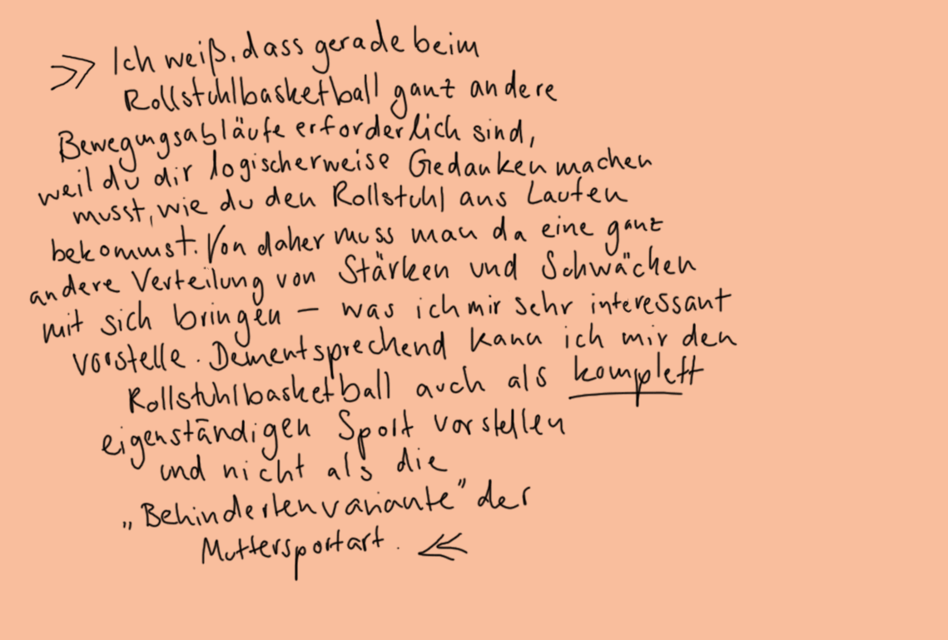 » Ich weiß, dass gerade beim
Rollstuhlbasketball ganz andere
Bewegungsabläufe erforderlich sind,
weil du dir logischerweise Gedanken machen
musst, wie du den Rollstuhl ans Laufen
bekommst. Von daher muss man da eine ganz
andere Verteilung von Stärken und Schwächen
mit sich bringen – was ich mir sehr interessant
vorstelle. Dementsprechend kann ich mir den
Rollstuhlbasketball auch als komplett
eigenständigen Sport vorstellen
und nicht als die
„Behindertenvariante" der
Muttersportart. «